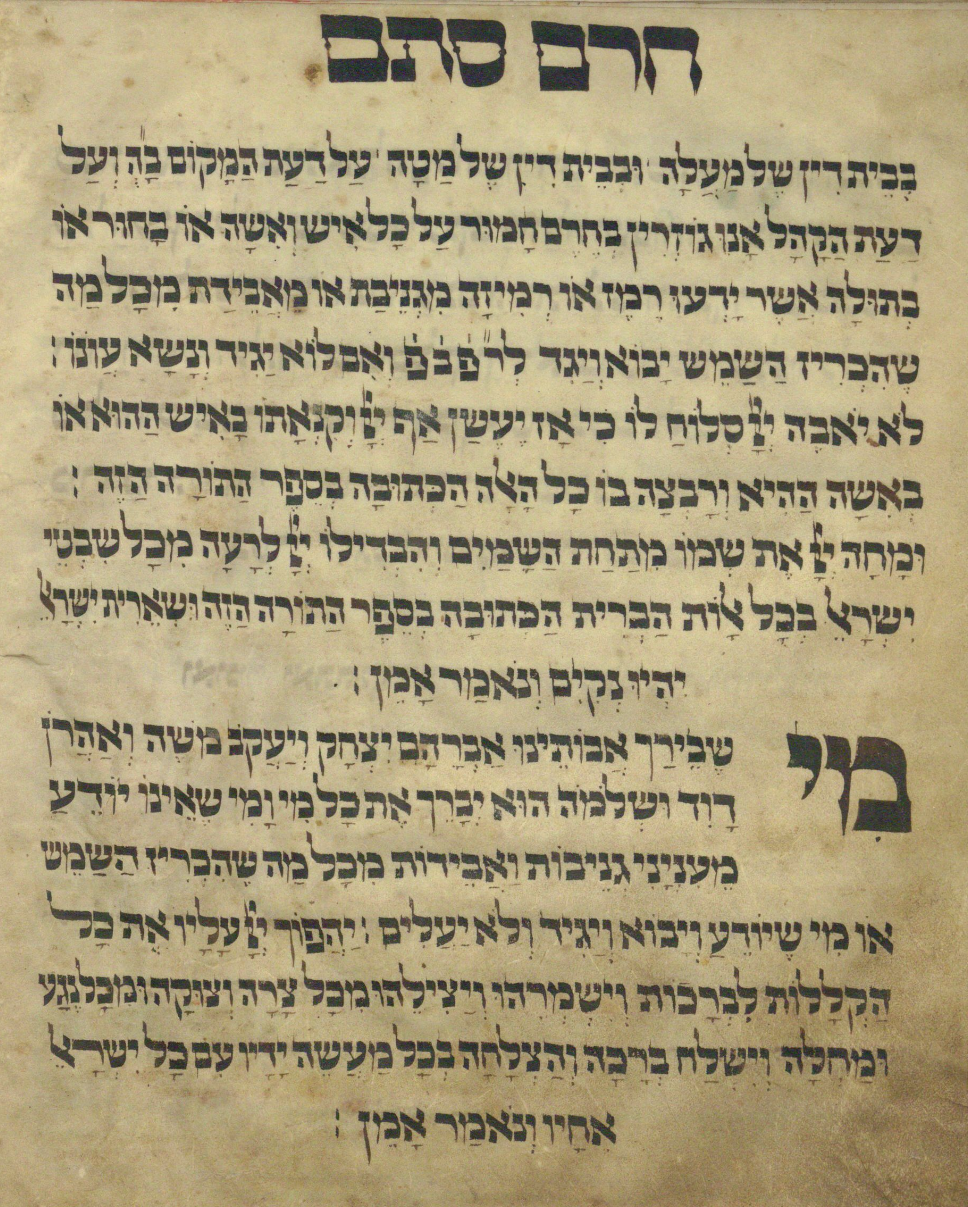 חרם סתם
בְּבֵית דִין שֶׁל מַעְלָה וּבְבֵית דִין שֶׁל מַטָה עַל דַעַת הַמָקוֹם בָּ״ה וְעַל
דַעַת הַקָהָל אָנוּ גוֹזְרִין בְּחֵרֶם חָמוּר עַל כָּל אִישׁ וְאִשָה אוֹ בָּחוּר אוֹ
בְּתוּלָה אֲשֶׁר יָדְעוּ רֶמֶז אוֹ רְמִיזָה מִגְנֵיבַת אוֹ מֵאֲבֵידַת מִכָּל מַה
שֶׁהִכְרִיז הַשַמָשׁ יָבוֹא וְיַגֵד לר״פ ב״פ וְאִם לוֹא יַגִיד וְנָשָׂא עֲוֹנוֹ :
לֹא יֹאבֶה יְיָ סְלוֹחַ לוֹ כִּי אָז יֶעְשַׁן אַף יְיָ וְקִנְאָתוֹ בָּאִישׁ הַהוּא אוֹ
בְאִשָה הַהִיא וְרָבְצָה בּוֹ כָּל הָאָלָה הַכְּתוּבָה בְּסֵפֶר הַתּוֹרָה הַזֶה :
וּמָחָה יְיָ אֶת שְׁמוֹ מִתַּחַת הַשָׁמַיִם וְהִבְדִילוֹ יְיָ לְרָעָה מִכָּל שִׁבְטֵי
יִשְׂרָאֵל בְּכָל אָלוֹת הַבְּרִית הַכְּתוּבָה בְּסֵפֶר הַתּוֹרָה הַזֶה וּשְׁאֵרִית יִשְׂרָאֵל
יִהְיוּ נְקִיִם וְנֹאמַר אָמֵן :
מִי שֶׁבֵּירַךְ אֲבוֹתֵינוּ אַבְרָהָם יִצְחָק וְיַעֲקֹב מֹשֶׁה וְאַהֲרֹן
דָוִד וּשְׁלֹמֹה הוּא יְבָרֵךְ אֶת כָּל מִי וָמִי שֶׁאֵינוֹ יוֹדֵעַ
מֵעִנְיְנֵי גְנֵיבוֹת וַאֲבֵידוֹת מִכָּל מַה שֶׁהִכְרִיז הַשַמָשׁ
אוֹ מִי שֶׁיוֹדֵעַ וְיָבוֹא וְיַגִיד וְלֹא יַעֲלִים : יַהֲפוֹךְ יְיָ עָלָיו אֶת כָּל
הַקְלָלוֹת לִבְרָכוֹת וְיִשְׁמְרֵהוּ וְיַצִילֵהוּ מִכָּל צָרָה וְצוּקָה וּמִכָּל נֶגַע
וּמַחֲלָה וְיִשְׁלַח בְּרָכָה וְהַצְלָחָה בְּכָל מַעֲשֵׂה יָדָיו עִם כָּל יִשְׂרָאֵל
אֶחָיו וְנֹאמַר אָמֵן :